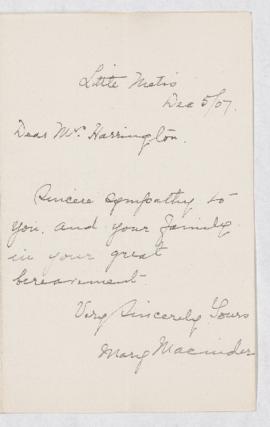 Little Metis
Dec 5/07.
Dear Mr. Harrington.
Sincere sympathy to
you, and your family
in your great
bereavement
Very Sincerely Yours
Mary Macnider